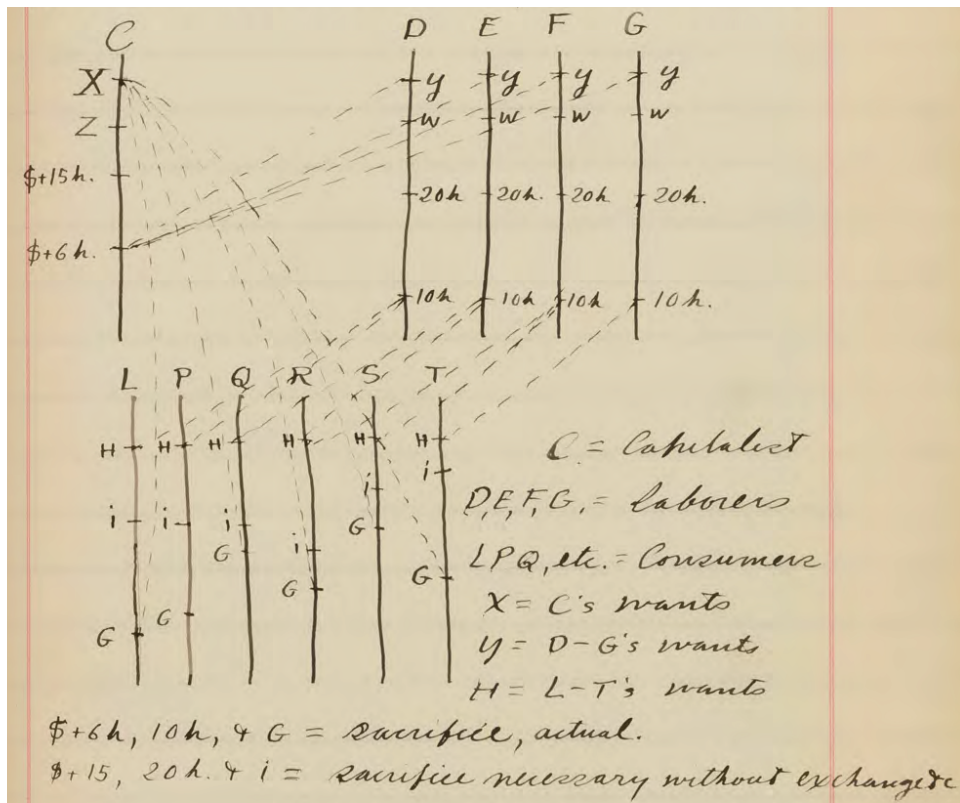 C D E F G
X y y y y
Z w w w w
$+15h. 20h 20h. 20h 20h.
$+6h. 10h 10h 10h 10h.
L P Q R S T
H H H H H H
i i i i i i
G G G G G G
C = Capitalist
D,E,F,G, = laborers
LPQ, etc. = Consumers
X = C's wants
y = D-G's wants
H = L-T's wants
$+6h, 10h, & G = sacrifice, actual.
$+15, 20h. & i = sacrifice necessary without exchange